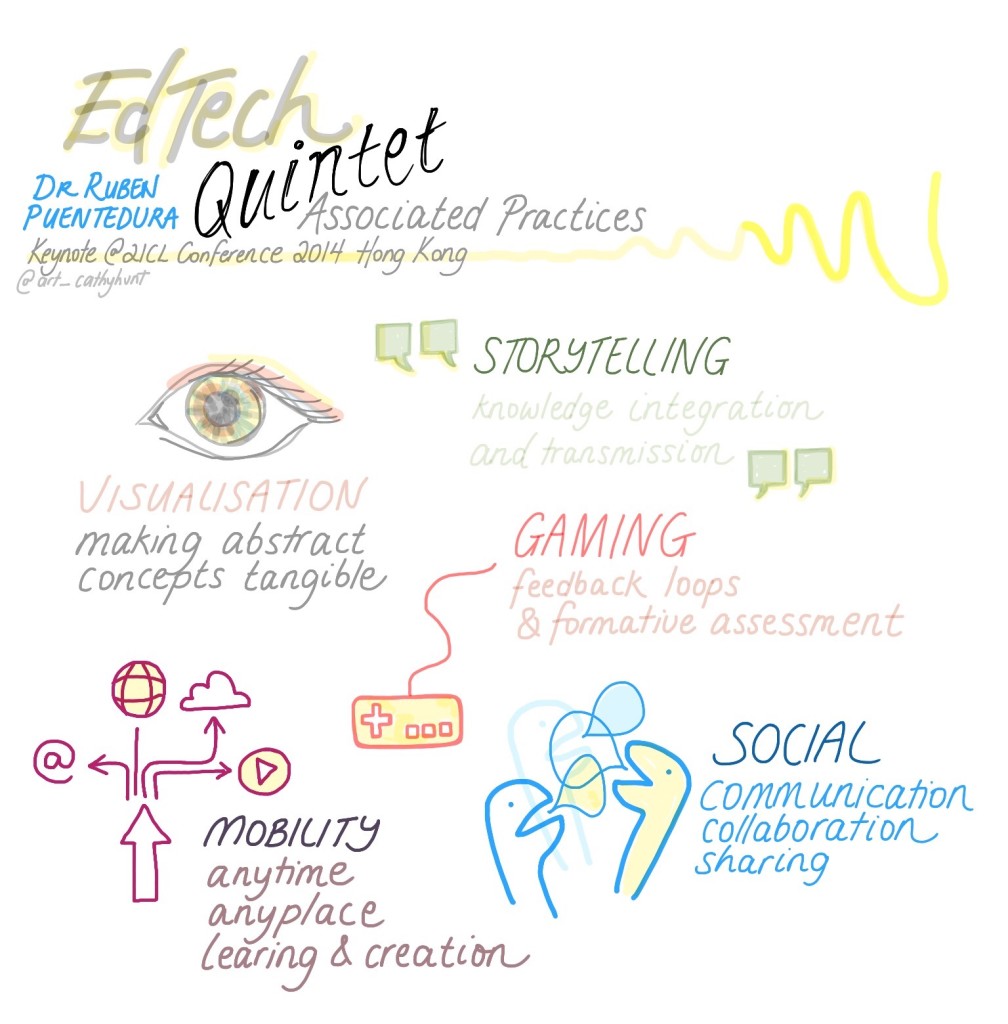 EdTech
Quintet
DR RUBEN
PUENTEDURA
Associated Practices
Keynote @21CL Conference 2014 Hong Kong
@art_cathyhunt
STORYTELLING
knowledge integration
and transmission
VISUALISATION
making abstract
concepts tangible
GAMING
feedback loops
& formative assessment
@
MOBILITY
anytime
anyplace
learing & creation
SOCIAL
communication
collaboration
sharing